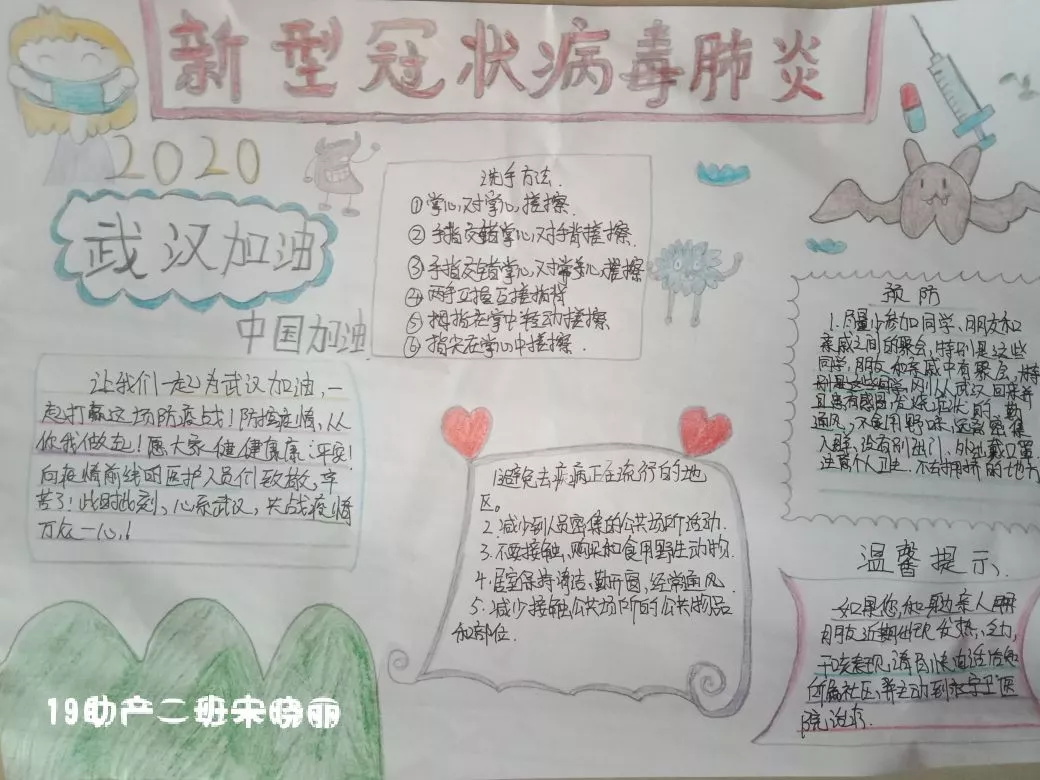 新型冠状病毒肺炎
2020
武汉加油
中国加油
洗手方法
①掌心对掌心搓擦
②手指交错掌心对手背搓擦
③手指交错掌心对掌心搓擦
④两手互握互搓指背
⑤拇指在掌中转动搓擦
⑥指尖在掌心中搓擦.
让我们一起为武汉加油,一
起打赢这场防疫战!防控疫情,从
你我做起!愿大家健健康康,平安!
向疫情前线的医护人员们致敬,辛
苦了!此时此刻,心系武汉,共战疫情
万众一心!
1.避免去疾病正在流行的地
区。
2.减少到人员密集的公共场所活动.
3.不要接触、购买和食用野生动物.
4.居室保持清洁,勤开窗,经常通风
5.减少接触公共场所的公共物品
和部位.
预防
1.尽量少参加同学、朋友和
亲戚之间的聚会,特别是这些
同学,朋友和亲戚中有聚会,特
别是这些 刚从武汉回来并
且患有感冒发烧症状的,勤
通风,不食用野味,
入群,没有别出门,外出戴口罩
注意个人卫生.不去拥挤的地方
温馨提示.
如果您和身边亲人
朋友近期出现发热,乏力,
干咳表现,请尽快电话告知
所属社区,并主动到 医
院治疗.
19助产二班宋晓丽